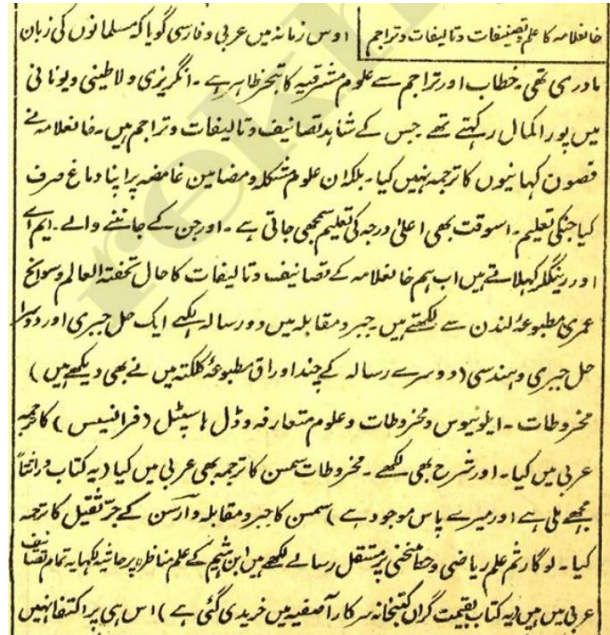 خانعلامہ کا علم و تصنیفات و تالیفات و تراجم
اوس زمانہ میں عربی و فارسی گویا کہ مسلمانوں کی زبان
مادری تھی۔ خطاب اور تراجم سے علوم مشرقیہ کا تبحر ظاہر ہے۔ انگریزی و لاطینی و یونانی
میں پورا کمال رکہتے تھے جس کے شاہد تصانیف و تالیفات و تراجم ہیں۔ خانعلامہ نے
قصوں کہانیوں کا ترجمہ نہیں کیا۔ بلکہ ان علوم مشکلہ و مضامین غامضہ پر اپنا دماغ صرف
کیا جنکی تعلیم۔ اسوقت بھی اعلیٰ درجہ کی تعلیم سمجھی جاتی ہے۔ اور جن کے جاننے والے۔ ایم اے
اور رینگلر کہلاتے ہیں اب ہم خانعلامہ کے تصانیف و تالیفات کا حال تحفتہ العالم و سوانح
عمری مطبوعۂ لندن سے لکھتے ہیں۔ جبر و مقابلہ میں دو رسالہ لکہے ایک حل جبری اور دوسرا
حل جبری و ہندسی (دوسرے رسالہ کے چند اوراق مطبوعۂ کلکتہ میں نے بھی دیکھے ہیں)
مخروطات۔ ایلونیوس و مخروطات و علوم متعارفہ و ڈل ہاسپٹل (فرانسیس) کا ترجمہ
عربی میں کیا۔ اور شرح بھی لکھے۔ مخروطات سمسن کا ترجمہ بھی عربی میں کیا (یہ کتاب وراثتاً
مجھے ملی ہے اور میرے پاس موجود ہے) سمسن کا جبر و مقابلہ و آرسن کے جر ثقیل کا ترجمہ
کیا۔ لوگارثم علم ریاضی و خط منحنی پر مستقل رسالے لکھے ہیں ابن ہثیم کے علم مناظرہ پر حاشیہ لکہا یہ تمام تصانیف
عربی میں ہیں (یہ کتاب بقیمت گراں کتبخانہ سرکار آصفیہ میں خریدی گئی ہے) اس ہی پر اکتفا نہیں